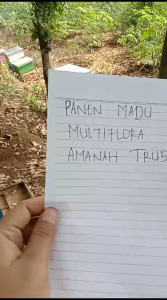 PANEN MADU
MULTIFLORA
AMANAH TRUS